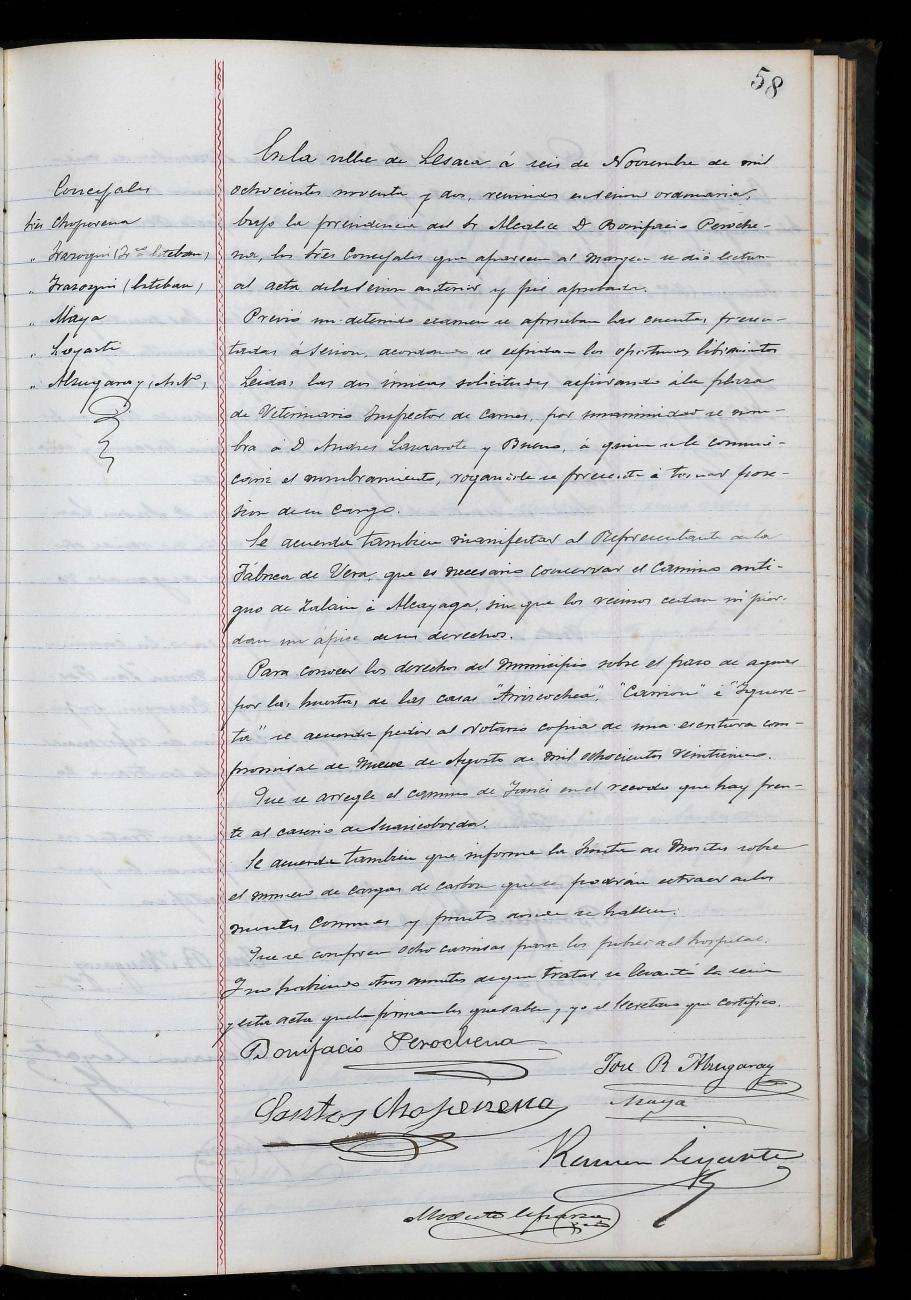 58
En la villa de Lesaca á seis de Noviembre de mil
ochocientos noventa y dos, reunidos en sesion ordinaria,
bajo la presidencia del Sr Alcalde D Bonifacio Peroche-
na, los Sres Concejales que aparecen al margen se dió lectura
al acta de la sesion anterior y fué aprobada.
Concejales
Sres Choperena
" Irazoqui (Esteban)
" Irazoqui (Esteban)
" Maya
" Liyarte
" Alzugaray
Previo un detenido examen se aprueban las cuentas presen-
tadas á sesion, acordando se expidan los oportunos libramientos
Leidas las dos únicas solicitudes aspirando á la plaza
de Veterinario Inspector de carnes, por unanimidad se nom-
bra á D Andres Lanzarote y Bueno, á quien se le comuni-
cará el nombramiento, rogandole se presente á tomar pose-
sion de su cargo.
Se acuerda tambien manifestar al Representante de la
Fabrica de Vera, que es necesario conservar el camino anti-
guo de Zalain á Alcayaga, sin que los vecinos cedan ni pier-
dan un ápice de sus derechos.
Para conocer los derechos del municipio sobre el paso de aguas
por las huertas de las casas "Arriscochea", é "Iguere-
ta" se acuerda pedir al Notario copia de una escritura com-
promisal de nueve de Agosto de mil ochocientos veintiuno.
Que se arregle el camino de en el recodo que hay fren-
te al caserio de Suaricoborda.
Se acuerda tambien que informe la Junta de Montes sobre
el número de cargas de carbon que se podrán extraer de los
montes comunes y puntos donde se hallen.
Que se compren ocho camisas para los pobres del hospital.
Y no habiendo otros asuntos de que tratar se levantó la sesion
y esta acta que la firman los que saben, y yo el Secretario que certifico.
Bonifacio Perochena
Jose R Alzugaray
Santos Choperena
Maya
Ramon Liyarte
Modesto